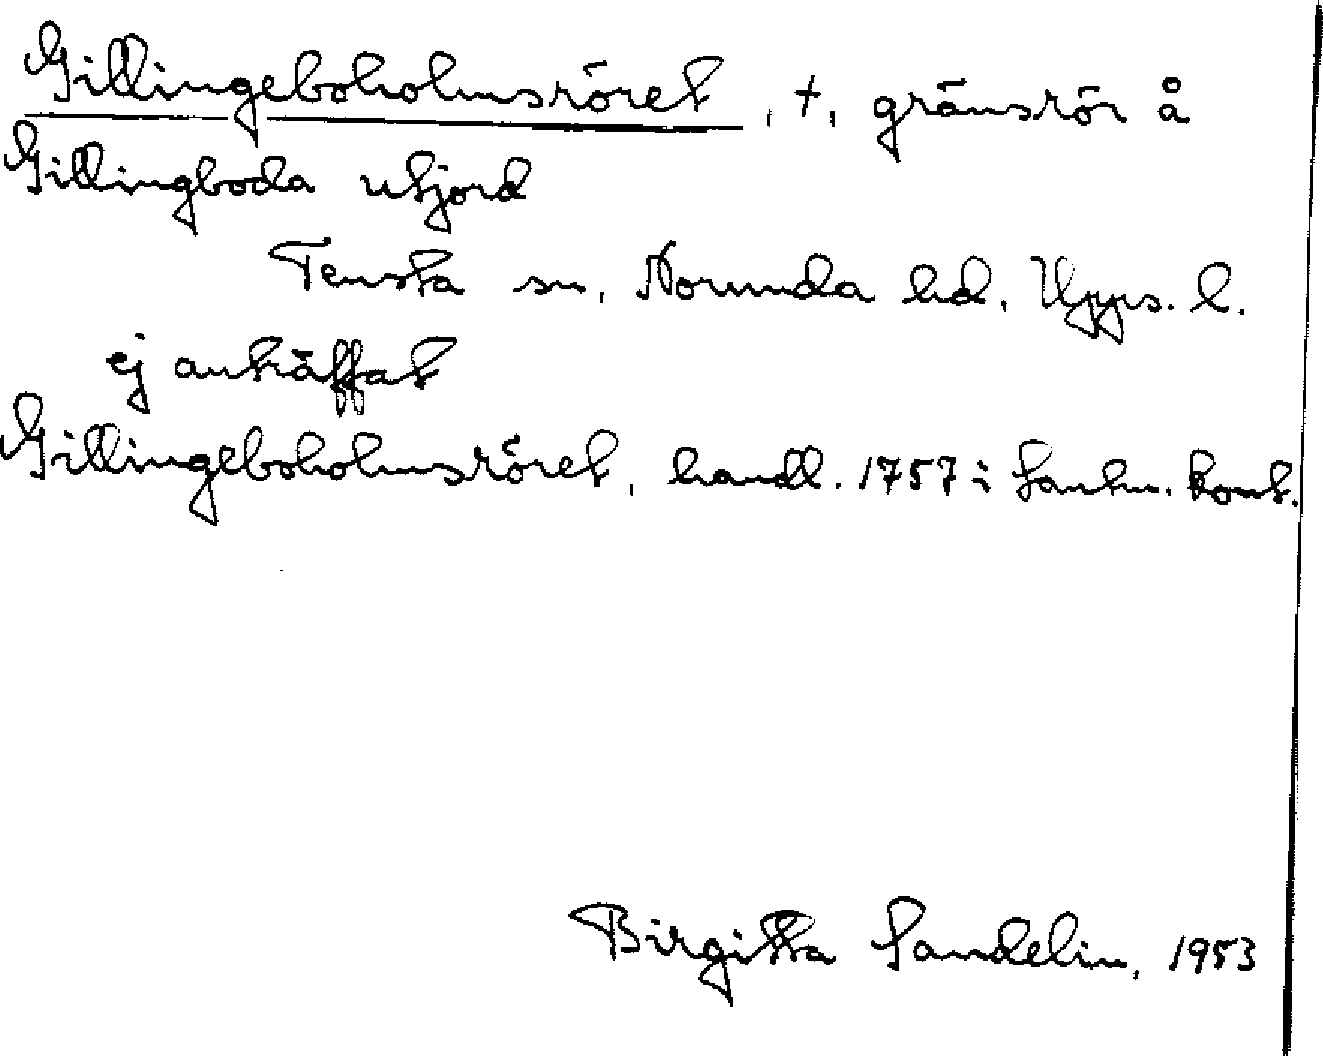 Gillingeboholmsröret, +, gränsrör å
Gillingboda utjord
Tensta sn, Norunda hd, Upps. l.
ej anträffat
Gillingeboholmsröret, handl. 1757 i Lantm. kont.
Birgitta Sandelin, 1953